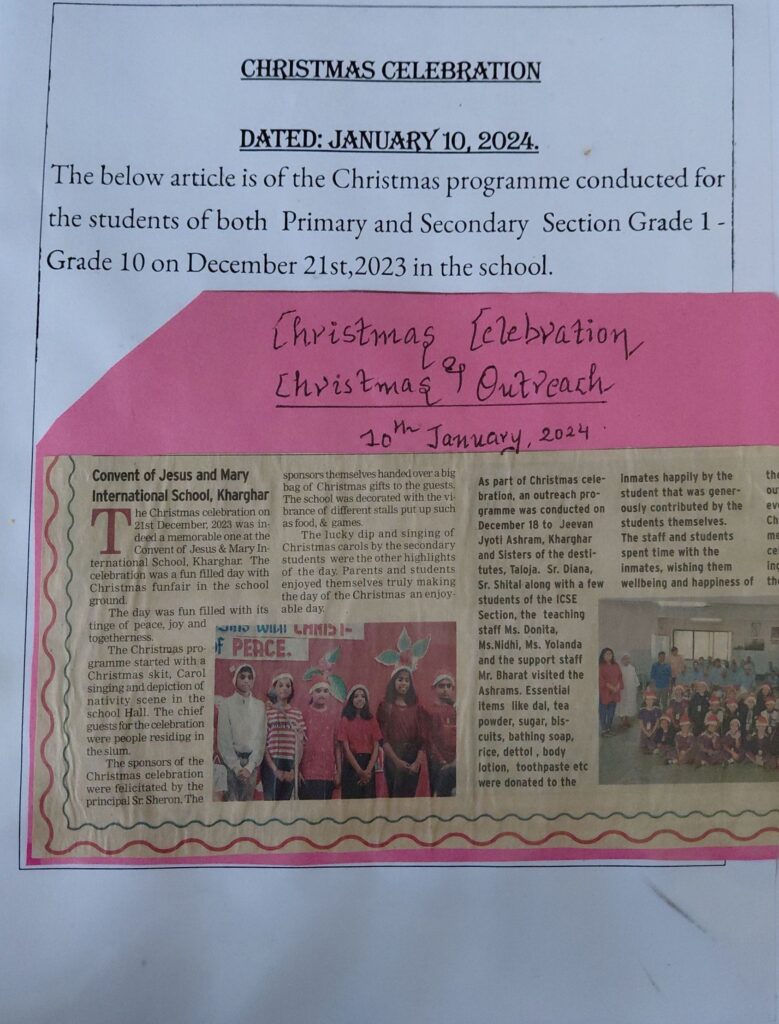 CHRISTMAS CELEBRATION
DATED: JANUARY 10, 2024.
The below article is of the Christmas programme conducted for
the students of both Primary and Secondary Section Grade 1 -
Grade 10 on December 21st,2023 in the school.
Christmas Celebration
&
Christmas Outreach
10th January, 2024
Convent of Jesus and Mary
International School, Kharghar
The Christmas celebration on
21st December, 2023 was in-
deed a memorable one at the
Convent of Jesus & Mary In-
ternational School, Kharghar. The
celebration was a fun filled day with
Christmas funfair in the school
ground.
The day was fun filled with its
tinge of peace, joy and
togetherness.
The Christmas pro-
gramme started with a
Christmas skit, Carol
singing and depiction of
nativity scene in the
school Hall. The chief
guests for the celebration
were people residing in
the slum.
The sponsors of the
Christmas celebration
were felicitated by the
principal Sr. Sheron. The
sponsors themselves handed over a big
bag of Christmas gifts to the guests.
The school was decorated with the vi-
brance of different stalls put up such
as food, & games.
The lucky dip and singing of
Christmas carols by the secondary
students were the other highlights
of the day. Parents and students
enjoyed themselves truly making
the day of the Christmas an enjoy-
able day.
WITH CHRIST-
OF PEACE.
As part of Christmas cele-
bration, an outreach pro-
gramme was conducted on
December 18 to Jeevan
Jyoti Ashram, Kharghar
and Sisters of the desti-
tutes, Taloja. Sr. Diana,
Sr. Shital along with a few
students of the ICSE
Section, the teaching
staff Ms. Donita,
Ms.Nidhi, Ms. Yolanda
and the support staff
Mr. Bharat visited the
Ashrams. Essential
items like dal, tea
powder, sugar, bis-
cuits, bathing soap,
rice, dettol, body
lotion, toothpaste etc
were donated to the
inmates happily by the
student that was gener-
ously contributed by the
students themselves.
The staff and students
spent time with the
inmates, wishing them
wellbeing and happiness of